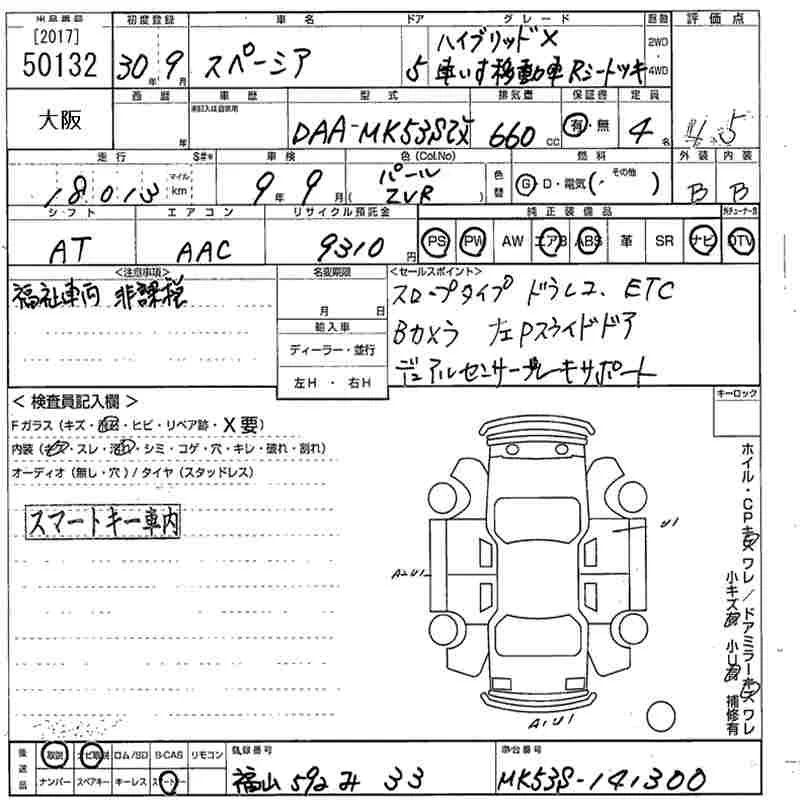 出品番号 初度登録 車名 ドア グレード 駆動 評価点
[2017]
50132 30年 9月 スペーシア 5 ハイブリッドX
車いす移動車 Rシートツキ
2WD
4WD
大阪 西暦 車歴 型式 排気量 保証書 定員
年 DAA-MK53S改 660cc 有・無 4名 4.5
走行 S#* 車検 色(Col.No) 燃料 外装 内装
18013 マイル km 9年 9月 (パール ZVR) 色替 G・D・電気(・その他 ) B B
シフト エアコン リサイクル預託金 純正装備品
AT AAC 9310円 PS PW AW エアB ABS 革 SR ナビ DTV
<注意事項> 名変期限 <セールスポイント>
福祉車両 非課税 月 日 スロープタイプ ドラレコ、ETC
輸入車 Bカメラ 左Pスライドドア
ディーラー・並行 デュアルセンサーブレーキサポート
左H・右H
<検査員記入欄> キーロック
Fガラス(キズ・・ヒビ・リペア跡・X要)
内装(・スレ・・シミ・コゲ・穴・キレ・破れ・割れ)
オーディオ(無し・穴)/タイヤ(スタッドレス)
スマートキー車内
U1
A2U1
A1U1
ホイル・CPキズ ワレ/ドアミラーキズ ワレ
小キズ有 小U有 補修有
後送品 取説 ナビ取説 ロム/SD B-CAS リモコン 登録番号 車台番号
ナンバー スペアキー キーレス スマートキー 福山 592 み 33 MK53S-141300